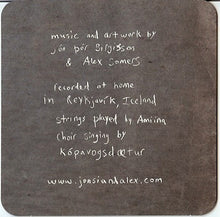 music and artwork by
jón þór Birgisson
& Alex Somers
recorded at home
in Reykjavík, Iceland
strings played by Amiina
choir singing by
Kópavogsdætur
www.jonsiandalex.com